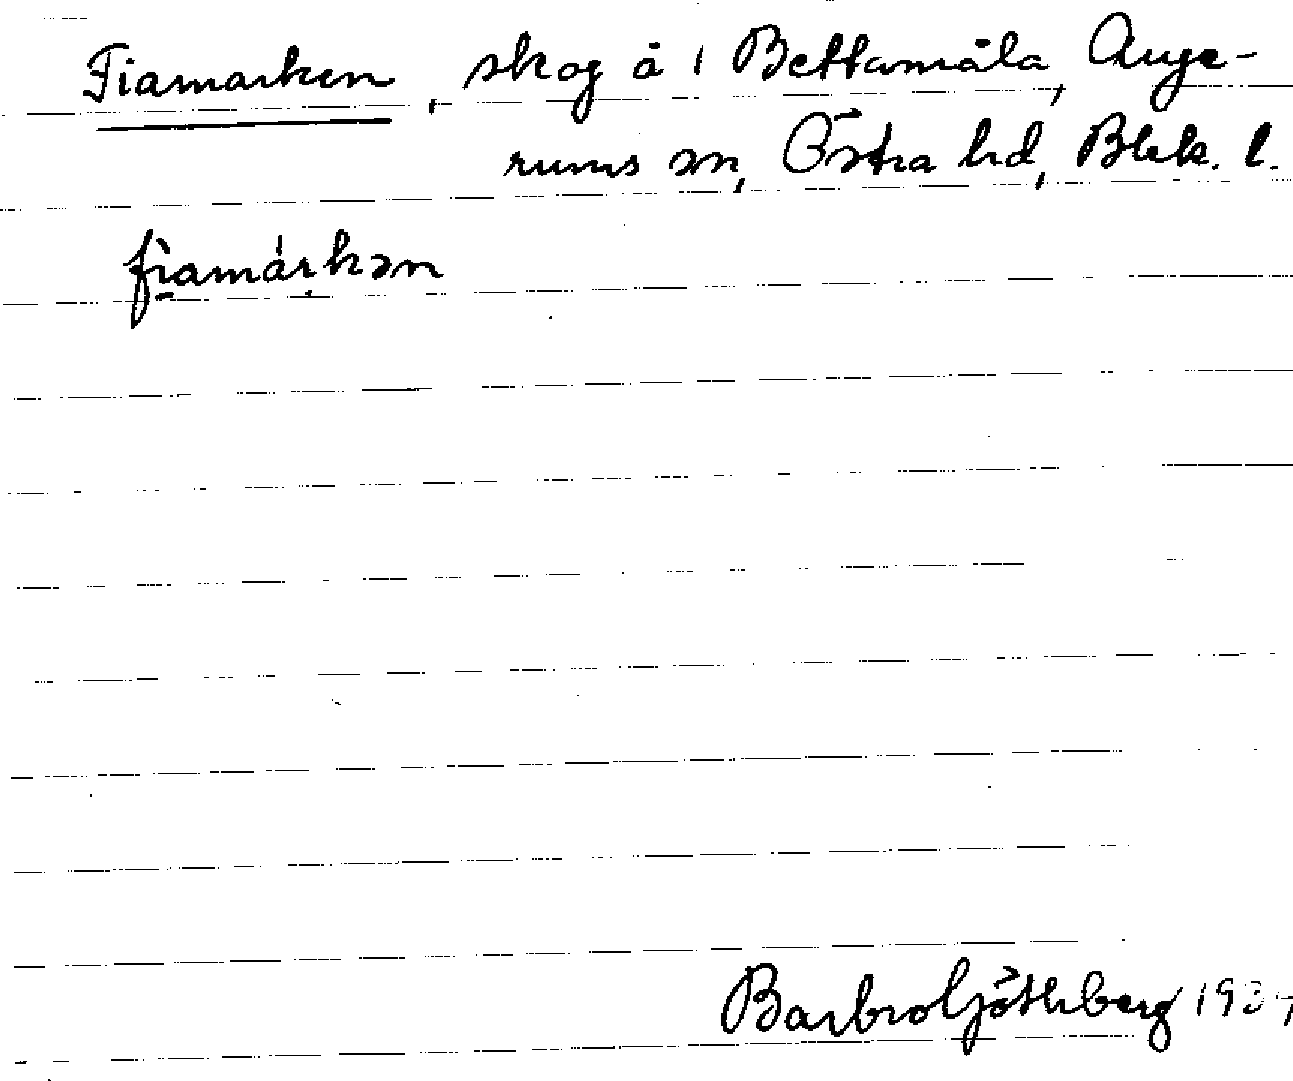 Fiamarken, skog å 1 Bettamåla, Auge-
rums sn, Östra hd, Blek. l.
fìamárkən
Barbro Göthberg